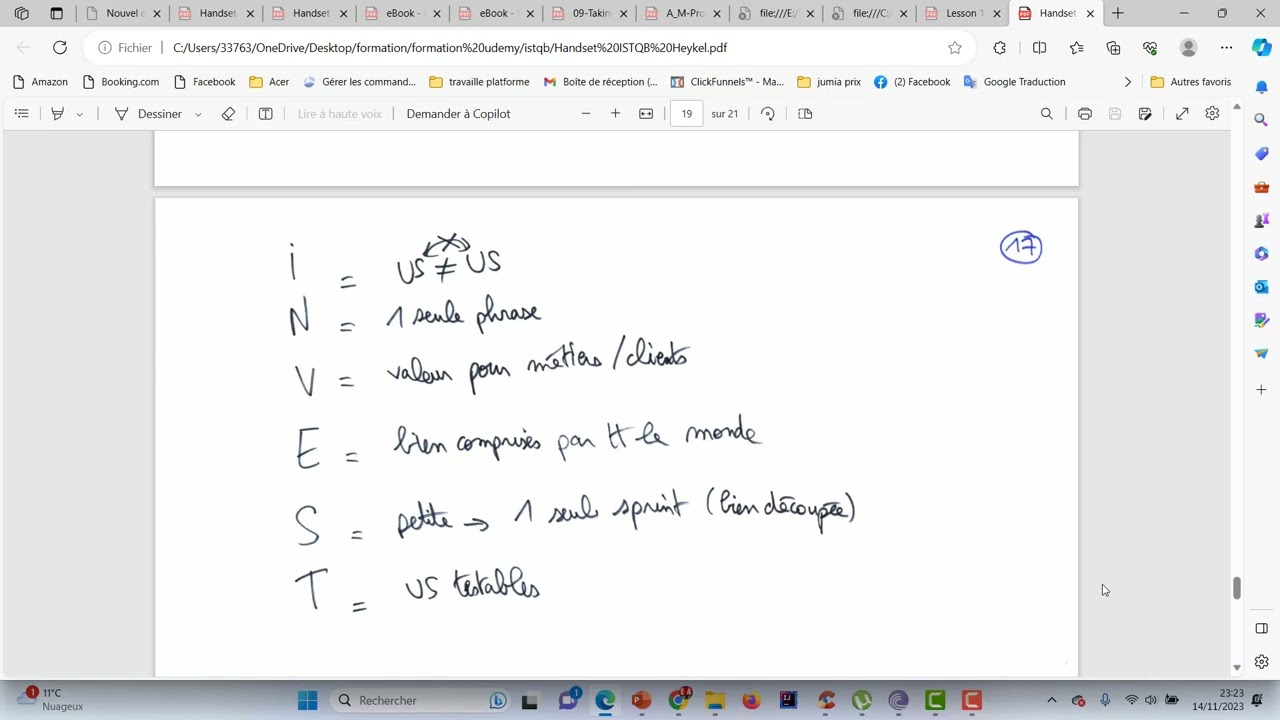 Nouvel o
Handset
Handset
eBook -
eBook -
09-Takin
A_M-Pro
file:///E:/
file:///C:/
Lesson 1
Handset
Fichier
C:/Users/33763/OneDrive/Desktop/formation/formation%20udemy/istqb/Handset%20ISTQB%20Heykel.pdf
Amazon
Booking.com
Facebook
Acer
Gérer les command...
travaille platforme
Boîte de réception (...
ClickFunnels™ - Ma...
jumia prix
(2) Facebook
Google Traduction
Autres favoris
Dessiner
Lire à haute voix
Demander à Copilot
19 sur 21
17
i = US ≠ US
N = 1 seule phrase
V = valeur pour métiers/clients
E = bien comprises par tt le monde
S = petite → 1 seul sprint (bien découpée)
T = US testables
1
11°C
Nuageux
Rechercher
1
23:23
14/11/2023